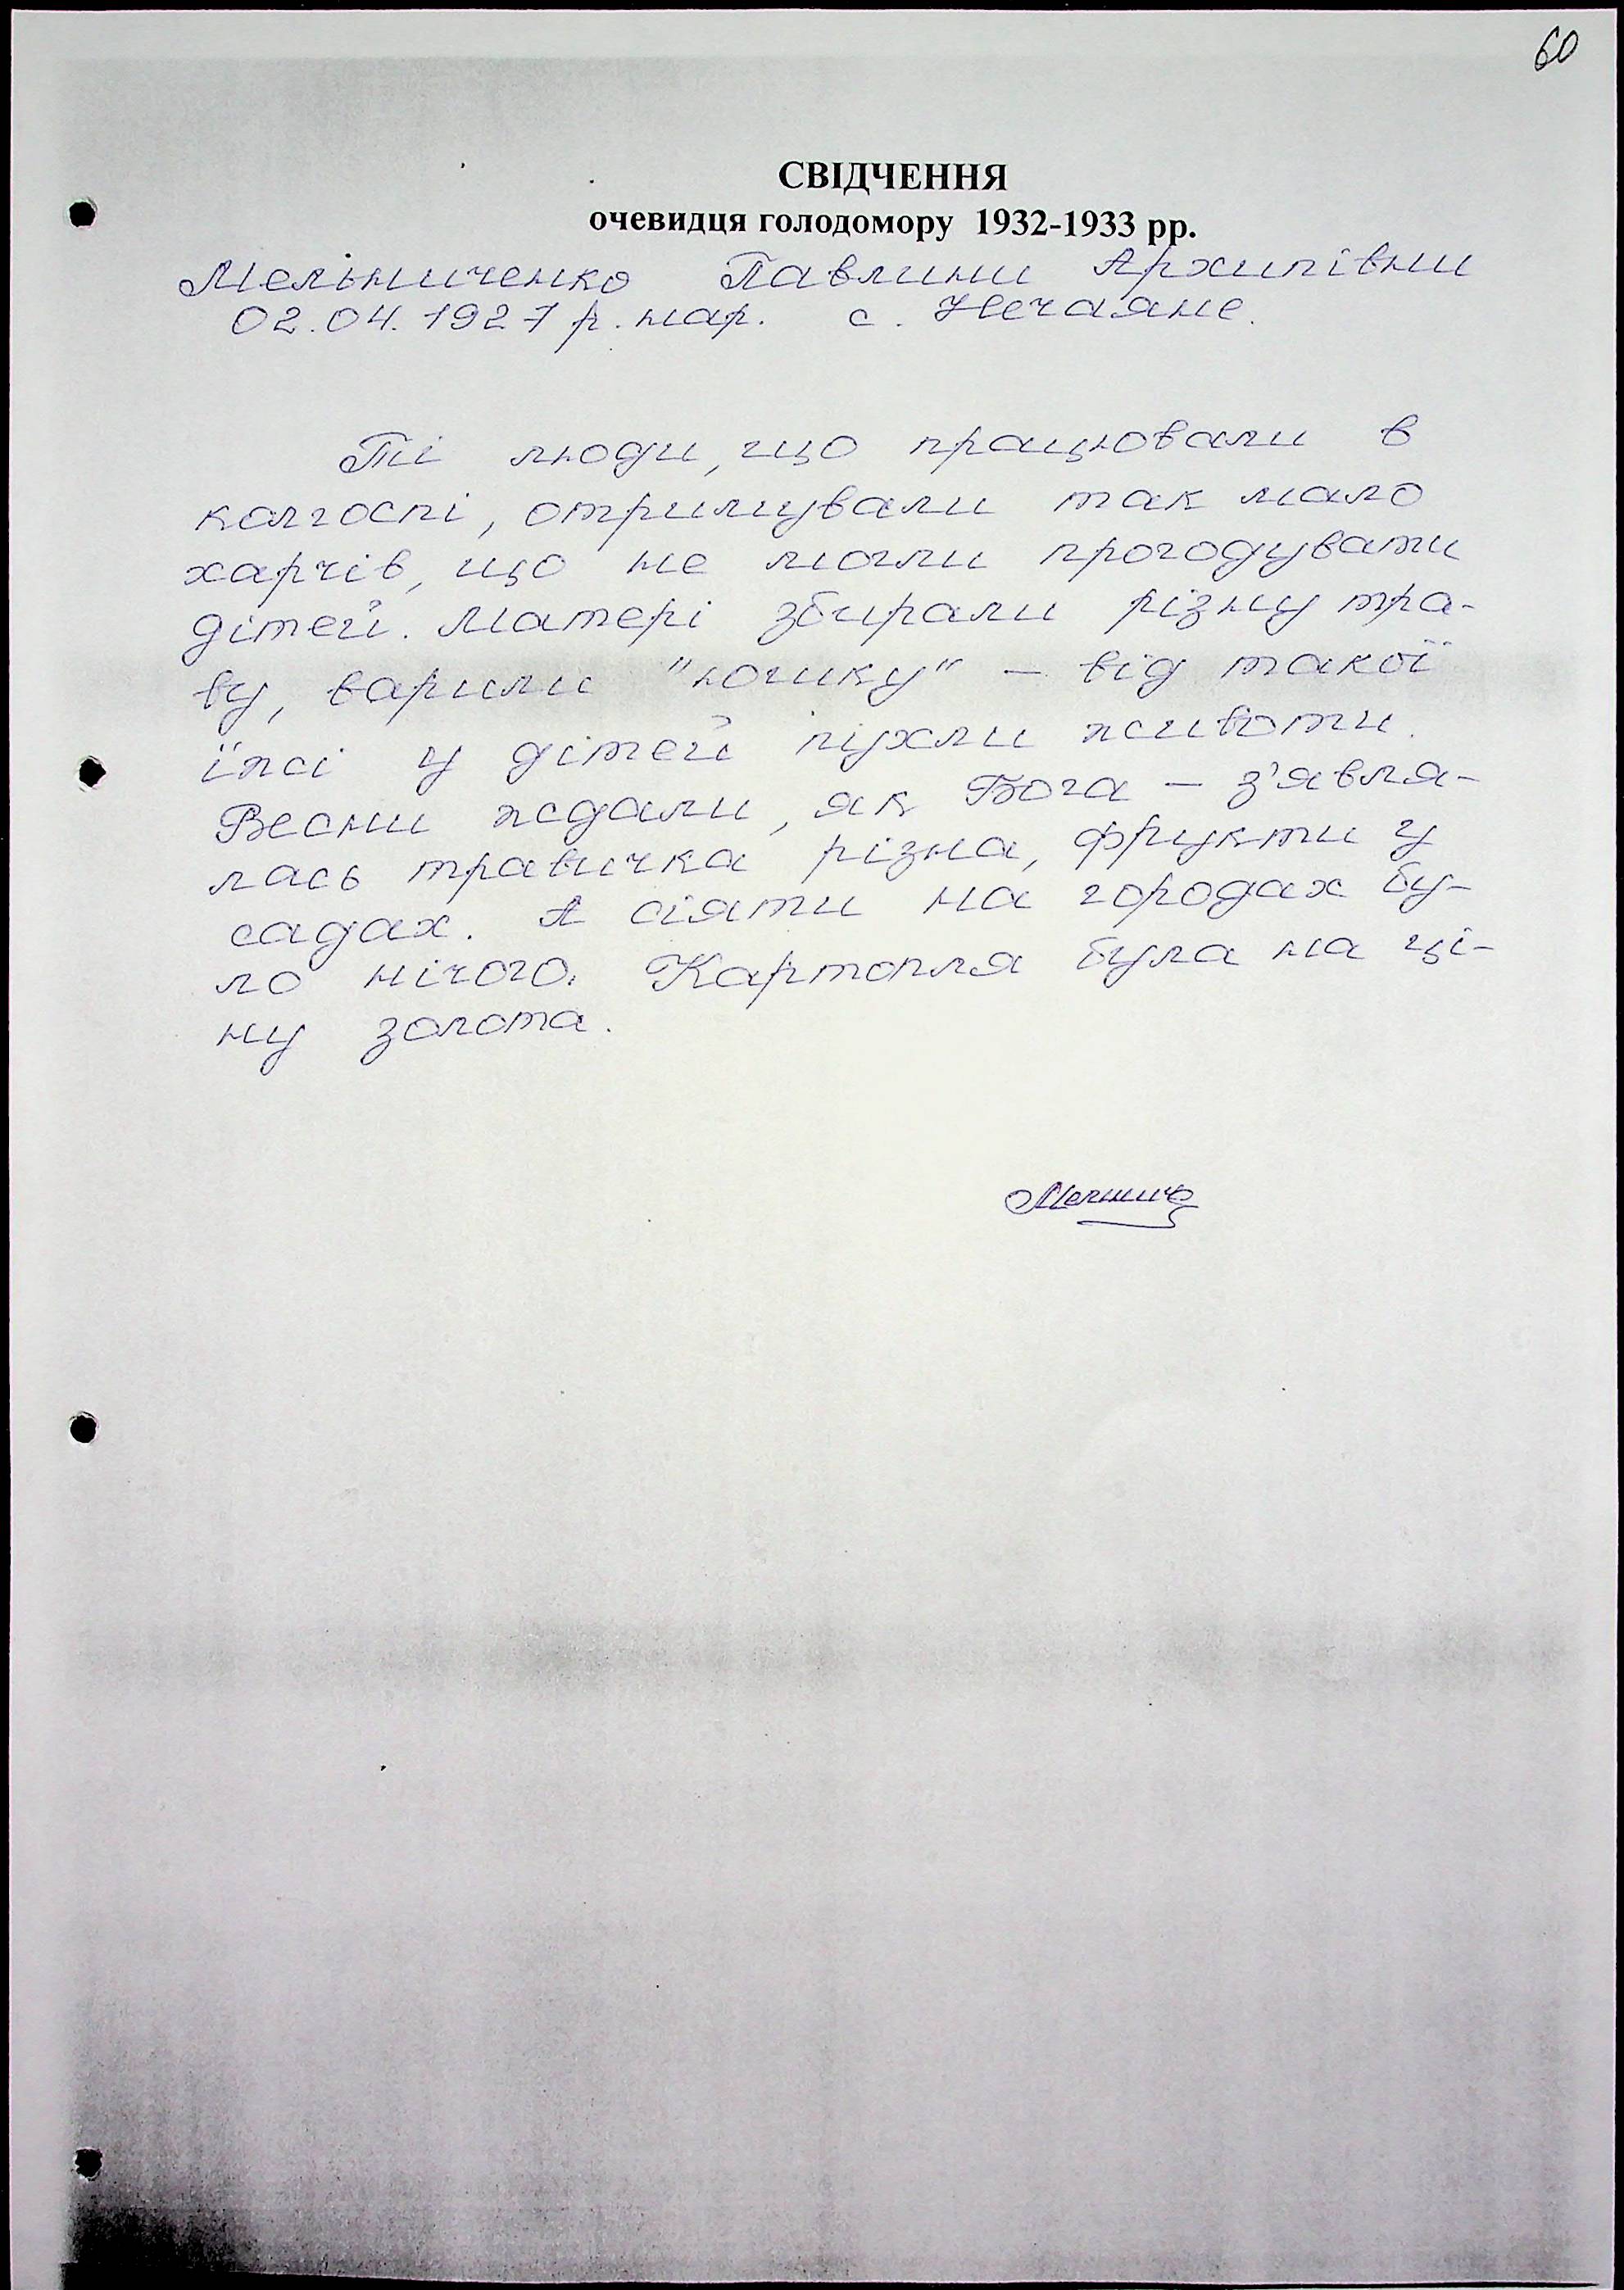 60
СВІДЧЕННЯ
очевидця голодомору 1932-1933 рр.
Мельниченко Павлини Архипівни
02.04.1927 р. нар. с. Нечаяне.
Ті люди, що працювали в
колгоспі, отримували так мало
харчів, що не могли прогодувати
дітей. Матері збирали різну тра-
ву, варили "юшку" – від такої
їжі у дітей пухли животи.
Весни ждали, як Бога – з'явля-
лась травичка різна, фрукти у
садах. А сіяти на городах бу-
ло нічого. Картопля була на ці-
ну золота.